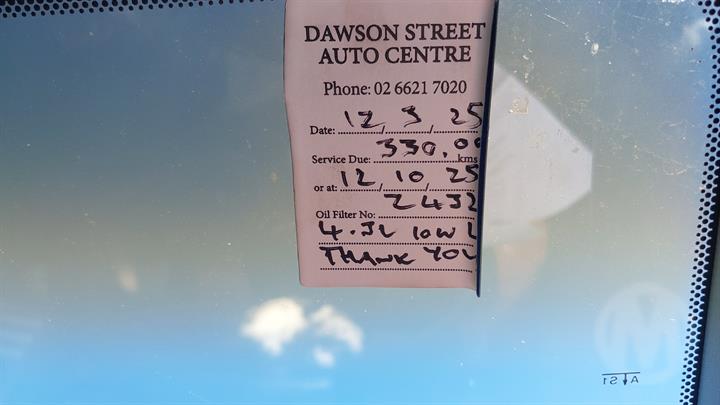 DAWSON STREET
AUTO CENTRE
Phone: 02 6621 7020
Date: 12 / 3 / 25
Service Due: 330,00 kms
or at: 12 / 10 / 25
Oil Filter No: Z432
4.5L 10W
THANK YOU